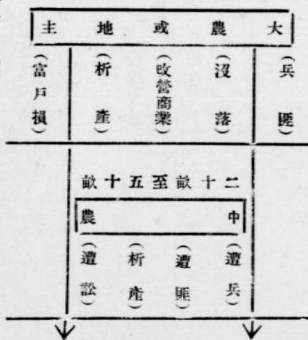 大農或地主
(兵匪)
(沒落)
(改營商業)
(析產)
(富戶損)
二十畝至五十畝
中農
(遭兵)
(遭匪)
(析產)
(遭訟)